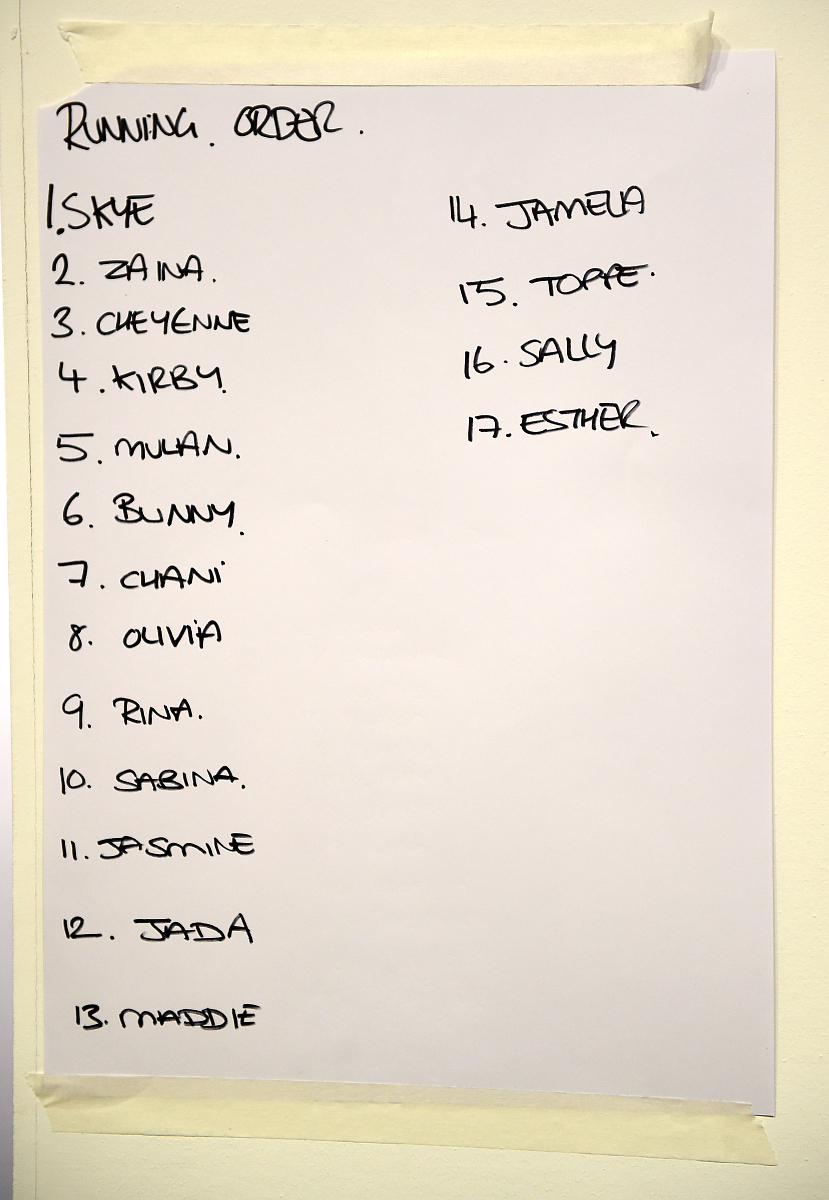 RUNNING. ORDER.
1. SKYE
2. ZAINA.
3. CHEYENNE
4. KIRBY.
5. MULAN.
6. BUNNY.
7. CHANI
8. OLIVIA
9. RINA.
10. SABINA.
11. JASMINE
12. JADA
13. MADDIE
14. JAMELA
15. TOPPE.
16. SALLY
17. ESTHER.